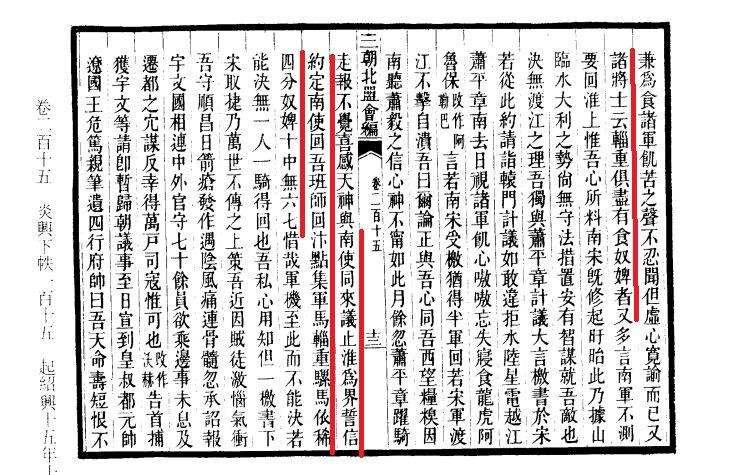 兼爲食諸軍飢苦之聲不忍聞但虛心寬諭而已又
諸將士云輜重俱盡有食奴婢者又多言南軍不測
要回淮上惟吾心所料南宋旣修起盱眙此乃據山
臨水大利之勢尙無守法措置安有智謀就吾敵也
決無渡江之理吾獨與蕭平章計議大言檄書於宋
若從此約請詣轅門計議如敢違拒水陸星電越江
蕭平章南去日視諸軍飢心嗷嗷忘失寢食龍虎阿
魯保改作阿勒巴言若南宋受檄猶得半軍回若宋軍渡
江不擊自潰吾曰爾論正與吾心同吾西望糧糗因
南聽蕭毅之信心神不甯如此月餘忽蕭平章躍騎
三朝北盟會編 卷二百十五 十三
走報不覺喜感天神與南使同來議止淮爲界誓信
約定南使回吾班師回汴點集軍馬輜重騾馬依稀
四分奴婢十中無六七惜哉軍機至此而不能決若
能決無一人一騎得回也吾私心用知但一檄書下
宋取捷乃萬世不傳之上策吾近因賊徒激惱氣衝
吾守順昌日箭瘡發作遇陰風痛連骨髓忽承詔報
宇文國相連中外官守七十餘員欲乘邊事未息及
遷都之宂謀反幸得萬戶司寇惟可也改作沃赫告首捕
獲宇文等請卽暫歸朝議事至日宣到皇叔都元帥
遼國王危篤親筆遺四行府帥曰吾天命壽短恨不
卷二百十五 炎興下帙一百十五 起紹興十五年